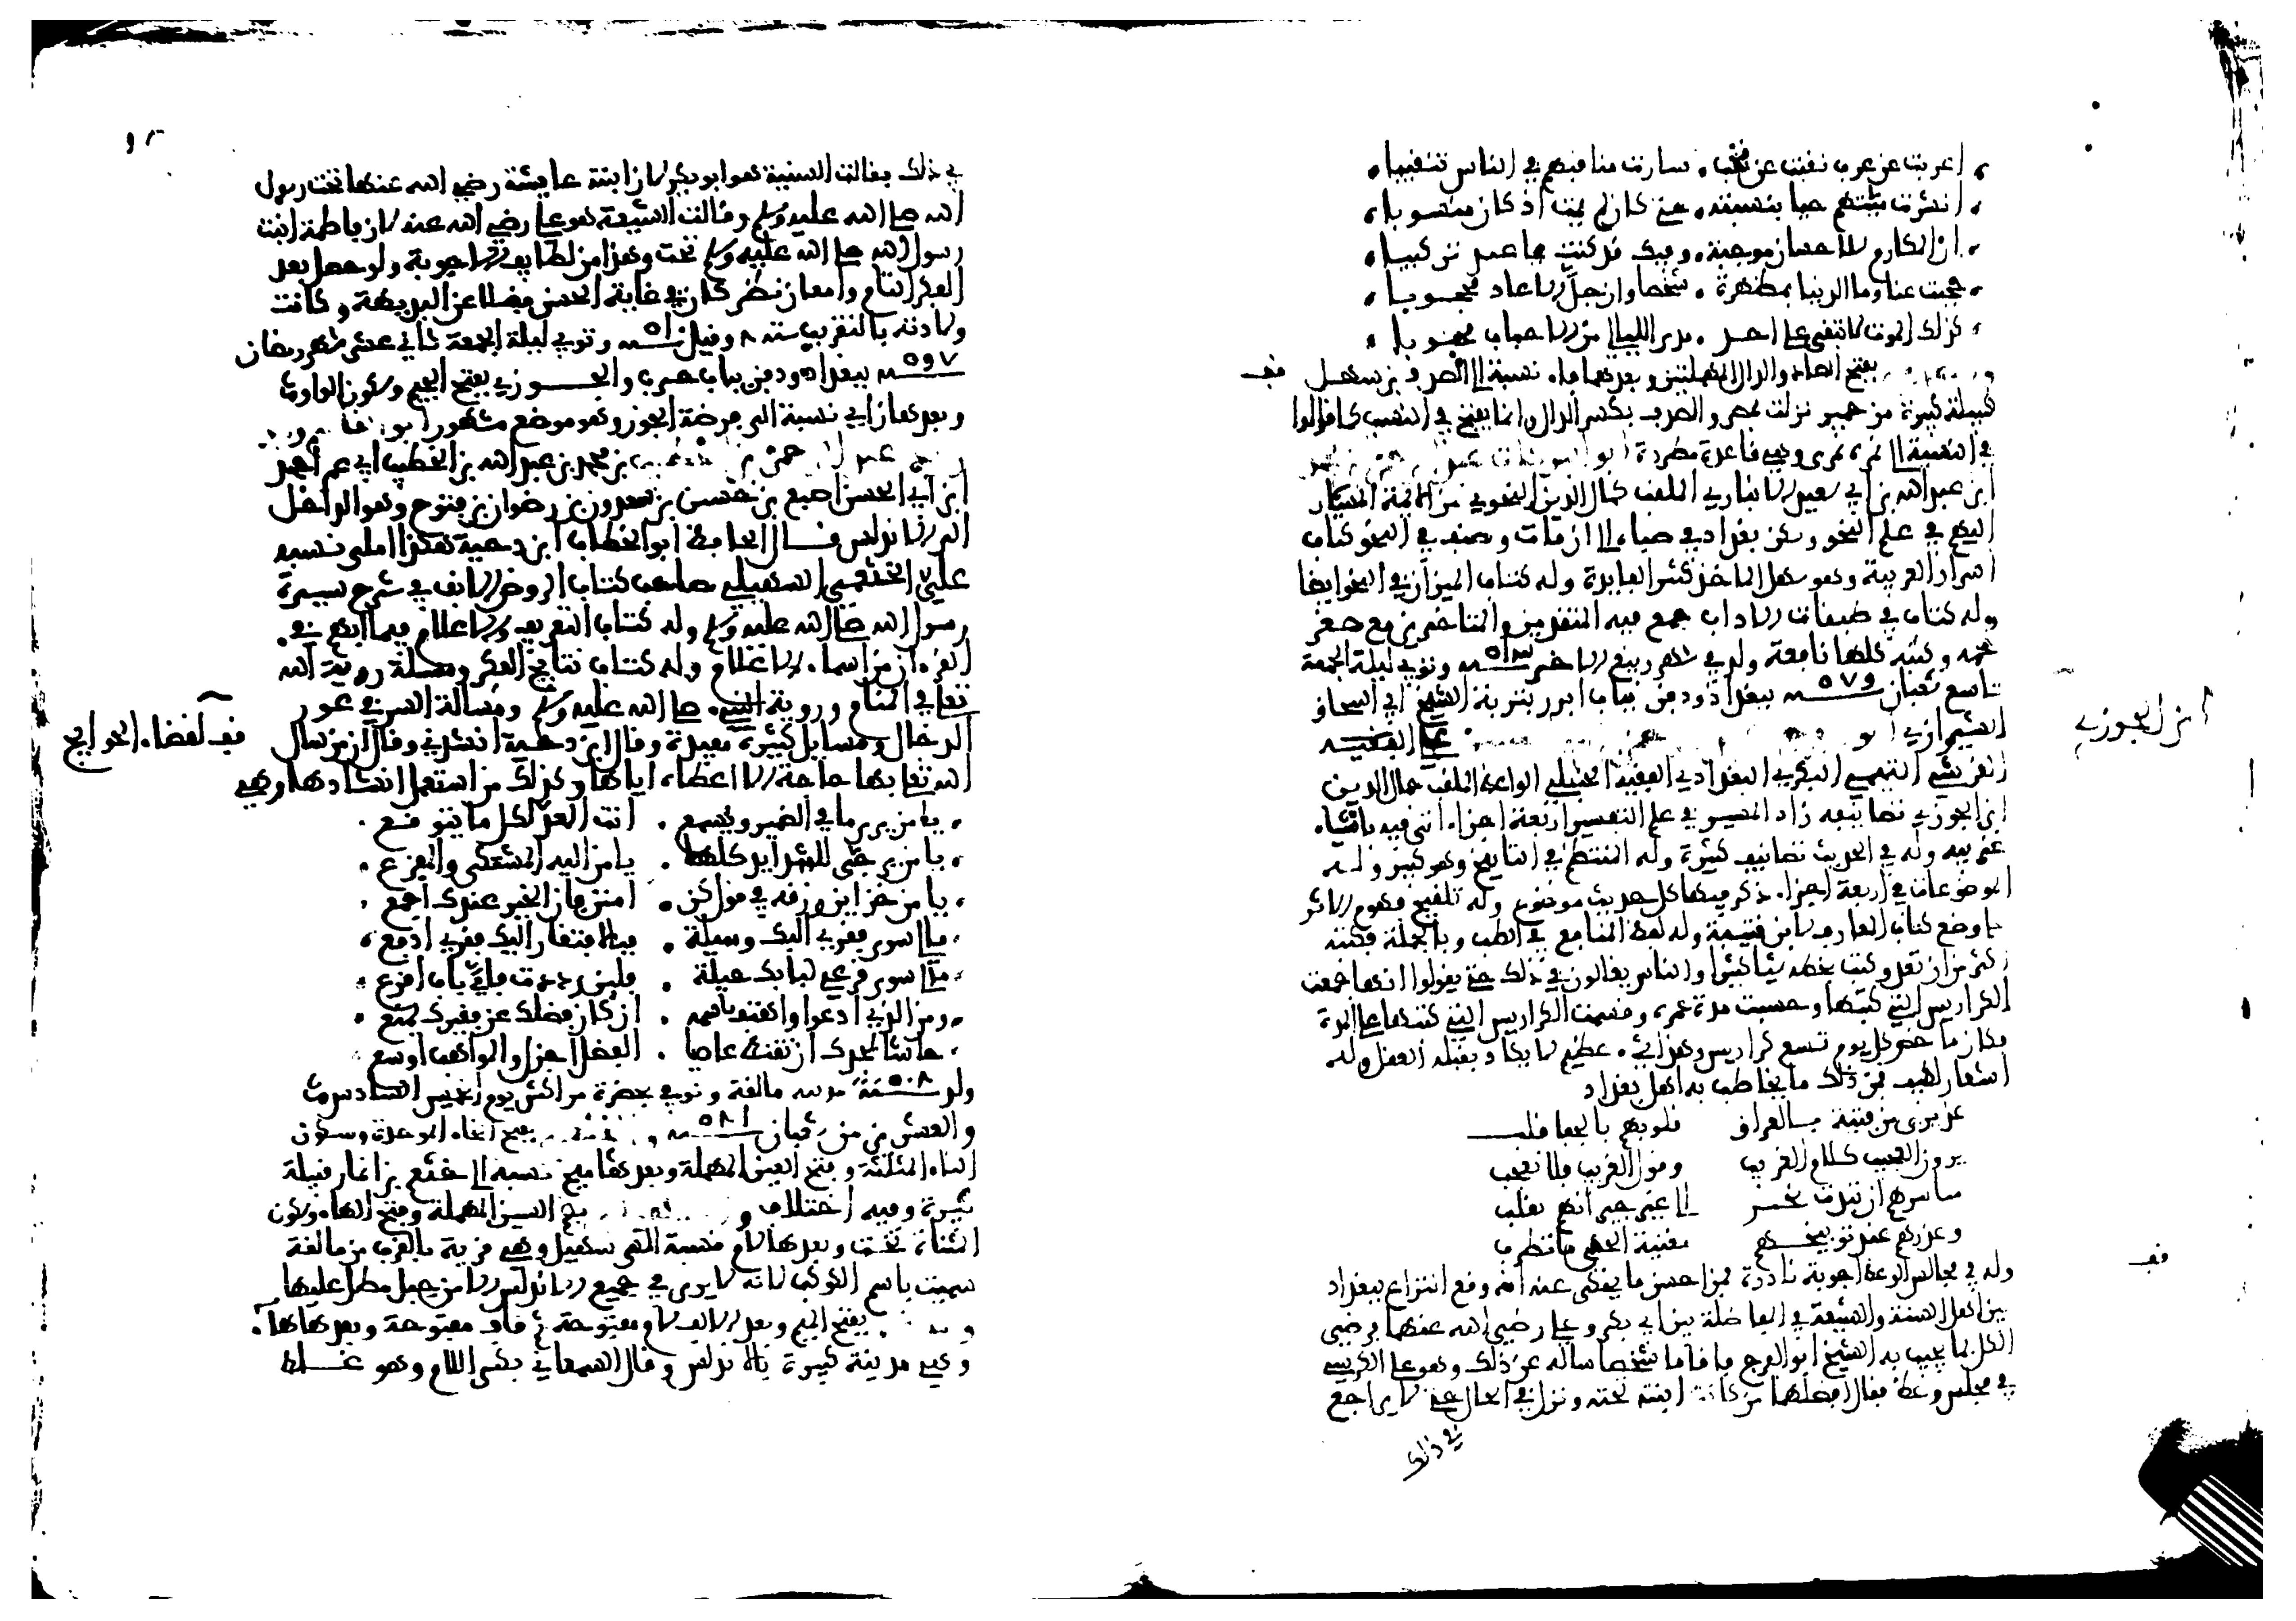 اعربت عن عرب نقبت عن نخب سارت مناقبهم في الناس تنقيبا
انشرت ميتهم حيا بنسبته حتى كان لم يمت اذ كان منسوبا
ان المكارم للاحسان موجبة وفيك قد كنت يا عبد تركيبا
حجبت عنا وما الدنيا بمظهرة شخصا وان جل الا عاد محجوبا
كذلك الموت لا يبقي على احد مدى الليالي من الاحباب محبوبا
بفتح الصاد والدال المهملتين وبعدهما فاء نسبة الى الصدف بن سهل
قبيلة كبيرة من حمير نزلت بمصر والصدف بكسر الدال وانما يفتح في النسب كما قالوا
في النسبة الى نمرة نمري وهي قاعدة مطردة ابو البركات عبد الرحمن بن محمد
ابن عبد الله بن ابي سعيد الانباري الملقب كمال الدين النحوي من الايمة المشار
اليهم في علم النحو وسكن بغداد في صباه الى ان مات وصنف في النحو كتاب
اسرار العربية وهو سهل الماخذ كثير الفايدة وله كتاب الميزان في النحو ايضا
وله كتاب في طبقات الاداب جمع فيه المتقدمين والمتاخرين مع صغر
حجمه وكتبه كلها نافعة ولد في شهر ربيع الاخر سنة ٥١٣ وتوفي ليلة الجمعة
تاسع شعبان سنة ٥٧٧ ببغداذ ودفن بباب ابرز بتربة الشيخ ابي اسحاق
الشيرازي ابو
القرشي التيمي البكري البغدادي الفقيه الحنبلي الواعظ الملقب جمال الدين
ابن الجوزي تصانيفه زاد المسير في علم التفسير اربعة اجزاء اتى فيه باشياء
غريبة وله في الحديث تصانيف كثيرة وله المنتظم في التاريخ وهو كبير وله
الموضوعات في اربعة اجزاء ذكر فيها كل حديث موضوع وله تلقيح فهوم الاثر
على وضع كتاب المعارف لابن قتيبة وله لقط المنافع في الطب وبالجملة فكتبه
اكثر من ان تعد وكتب بخطه شيا كثيرا والناس يغالون في ذلك حتى يقولوا انها جمعت
الكراريس التي كتبها وحسبت مدة عمره وقسمت الكراريس التي كتبها على المدة
فكان ما خص كل يوم تسع كراريس وهذا شيء عظيم لا يكاد يقبله العقل وله
اشعار لطيفة فمن ذلك ما يخاطب به اهل بغداد
عذيري من فتية بالعراق قلوبهم بالجفا قلب
يرون العجيب كلام الغريب وقول القريب فلا يعجب
ميازيبهم ان تندت بخير الى غير جيرانهم تقلب
وعذرهم عند توبيخهم مغنية الحي ما تطرب
وله في مجالس الوعظ اجوبة نادرة فمن احسن ما يحكى عنه انه وقع النزاع ببغداد
بين اهل السنة والشيعة في المفاضلة بين ابي بكر وعلي رضي الله عنهما فرضي
الكل بما يجيب به الشيخ ابو الفرج فاقاما شخصا ساله عن ذلك وهو على الكرسي
في مجلس وعظه فقال افضلهما من كانت ابنته تحته ونزل في الحال حتى لا يراجع
في ذلك
ابن الجوزي
قف
قف
في ذلك فقالت السنية هو ابو بكر لان ابنته عايشة رضي الله عنها تحت رسول
الله صلى الله عليه وسلم وقالت الشيعة هو علي رضي الله عنه لان فاطمة ابنت
رسول الله صلى الله عليه وسلم تحته وهذا من لطايف الاجوبة ولو حصل بعد
الفكر التام وامعان نظر كان في غاية الحسن فضلا عن البديهة وكانت
ولادته بالتقريب سنة ٨ وقيل ٥١٠ وتوفي ليلة الجمعة ثاني عشر شهر رمضان
سنة ٥٩٧ ببغداد ودفن بباب حرب والجوزي بفتح الجيم وسكون الواو
وبعدها زاي نسبة الى فرضة الجوز وهو موضع مشهور ابو القاسم
عبد الرحمن بن الخطيب بن محمد بن عبد الله بن الخطيب ابي عمر احمد
ابن ابي الحسن اصبغ بن حسين بن سعدون بن رضوان بن فتوح وهو الداخل
الى الاندلس قال الحافظ ابو الخطاب ابن دحية هكذا املى نسبه
علي الخثعمي السهيلي صاحب كتاب الروض الانف في شرح سيرة
رسول الله صلى الله عليه وسلم وله كتاب التعريف والاعلام فيما ابهم في
القرءان من اسماء الاعلام وله كتاب نتايج الفكر ومسلة روية الله
تعالى في المنام وروية النبي صلى الله عليه وسلم ومسالة السر في عور
الدجال ومسايل كثيرة مفيدة وقال ابن دحية انشدني وقال ان من سال
الله تعالى بها حاجة الا اعطاه اياها وكذلك من استعمل انشادها وهي
يا من يرى ما في الضمير ويسمع انت المعد لكل ما يتوقع
يا من يرجى للشدايد كلها يا من اليه المشتكى والمفزع
يا من خزاين رزقه في قول كن امنن فان الخير عندك اجمع
ما لي سوى فقري اليك وسيلة فبالافتقار اليك فقري ادفع
ما لي سوى قرعي لبابك حيلة فلين رددت فاي باب اقرع
ومن الذي ادعوا واهتف باسمه ان كان فضلك عن فقيرك يمنع
حاشا لمجدك ان تقنط عاصيا الفضل اجزل والمواهب اوسع
ولد سنة ٥٠٨ بمدينة مالقة وتوفي بحضرة مراكش يوم الخميس السادس
والعشرين من شعبان سنة ٥٨١ والخثعمي بفتح الخاء الموحدة وسكون
الثاء المثلثة وفتح العين المهملة وبعدها ميم نسبة الى خثعم بن انمار قبيلة
كبيرة وفيه اختلاف و بضم السين المهملة وفتح الهاء وسكون
المثناة تحت وبعدها لام نسبة الى سهيل وهي قرية بالقرب من مالقة
سميت باسم الكوكب لانه لا يرى في جميع الاندلس الا من جبل مطل عليها
و بفتح الميم وبعد الالف لام مفتوحة ثم قاف مفتوحة وبعدها هاء
وهي مدينة كبيرة بالاندلس وقال السمعاني بكسر اللام وهو غلط
قف لقضاء الحوايج